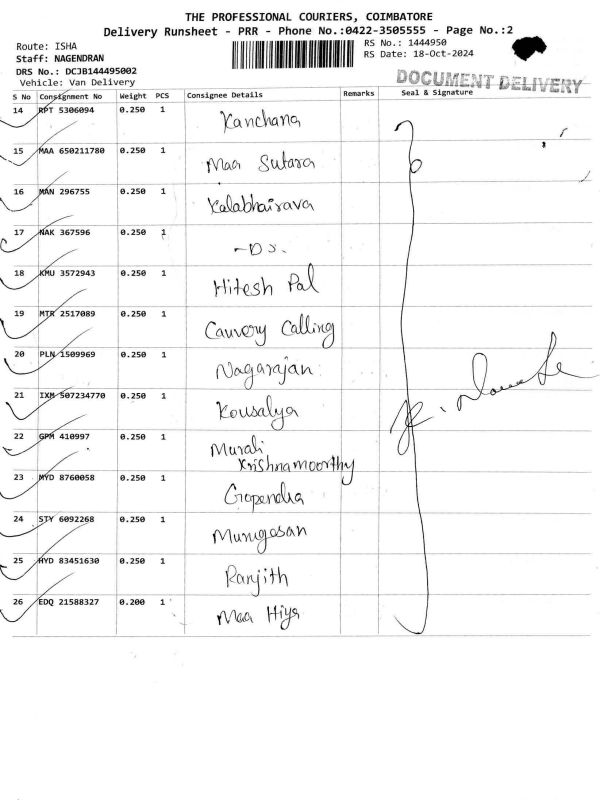 THE PROFESSIONAL COURIERS, COIMBATORE
Delivery Runsheet - PRR - Phone No.:0422-3505555 - Page No.:2
Route: ISHA
Staff: NAGENDRAN
DRS No.: DCJB144495002
Vehicle: Van Delivery
RS No.: 1444950
RS Date: 18-Oct-2024
DOCUMENT DELIVERY
S No Consignment No Weight PCS Consignee Details Remarks Seal & Signature
14 RPT 5306094 0.250 1 Kanchana
15 MAA 650211780 0.250 1 Maa Sutara
16 MAN 296755 0.250 1 Kalabhairava
17 NAK 367596 0.250 1 -DS.
18 KMU 3572943 0.250 1 Hitesh Pal
19 MTR 2517089 0.250 1 Cauvery Calling
20 PLN 1509969 0.250 1 Nagarajan
21 IXM 507234770 0.250 1 Kousalya
22 GPM 410997 0.250 1 Murali
Krishnamoorthy
23 MYD 8760058 0.250 1 Gopendra
24 STY 6092268 0.250 1 Murugesan
25 HYD 83451630 0.250 1 Ranjith
26 EDQ 21588327 0.200 1 Maa Hiya